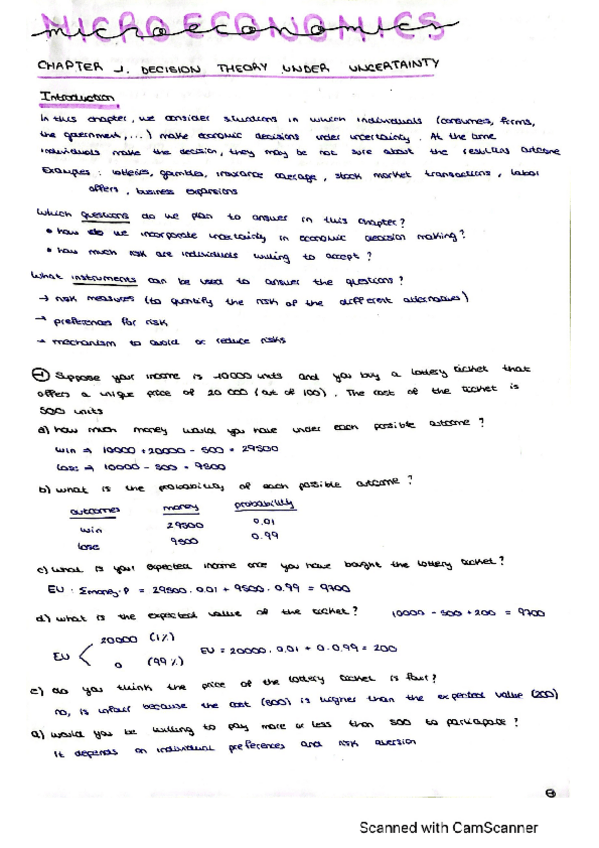 MICROECONOMICS
microeconomics
CHAPTER 1. DECISION THEORY UNDER UNCERTAINTY
Introduction
In this chapter, we consider situations in which individuals (consumers, firms,
the government, ...) make economic decisions under uncertainty. At the time
individuals make the decision, they may be not sure about the resulting outcome
Examples: lotteries, gambles, insurance coverage, stock market transactions, labor
offers, business expansions
Which questions do we plan to answer in this chapter?
• how do we incorporate uncertainty in economic decision making?
• how much risk are individuals willing to accept?
What instruments can be used to answer the questions?
→ risk measures (to quantify the risk of the different alternatives)
→ preferences for risk
→ mechanism to avoid or reduce risks
1 Suppose your income is 10000 units and you buy a lottery ticket that
offers a unique price of 20 000 (out of 100). The cost of the ticket is
500 units
a) how much money would you have under each possible outcome?
win ⇒ 10000 + 20000 - 500 = 29500
lose ⇒ 10000 - 500 = 9500
b) what is the probability of each possible outcome?
outcomes money probability
win 29500 0.01
lose 9500 0.99
c) what is your expected income once you have bought the lottery ticket?
EU: Σmoney·P = 29500·0.01 + 9500·0.99 = 9700
d) what is the expected value of the ticket? 10000 - 500 + 200 = 9700
20000 (1%)
EU EU = 20000·0.01 + 0·0.99 = 200
0 (99%)
e) do you think the price of the lottery ticket is fair?
no, is unfair because the cost (500) is higher than the expected value (200)
a) would you be willing to pay more or less than 500 to participate?
It depends on individual preferences and risk aversion
Scanned with CamScanner